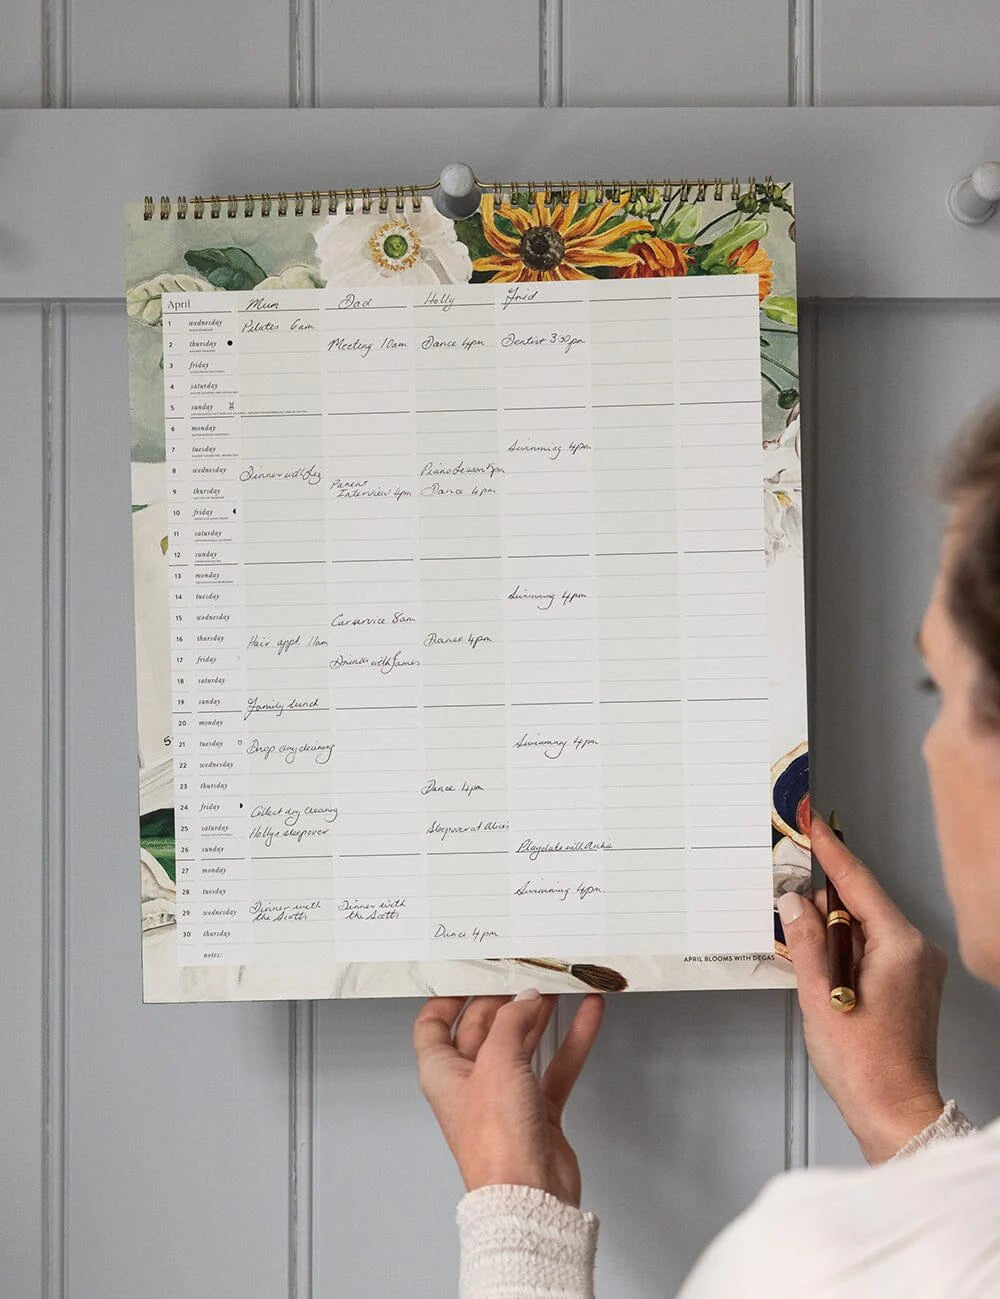 April Mum Dad Holly Fred
1 wednesday Pilates 6am
2 thursday Meeting 10am Dance 4pm Dentist 3:30pm
3 friday
4 saturday
5 sunday
6 monday
7 tuesday Swimming 4pm
8 wednesday Dinner with Liz Piano Lesson 5pm
9 thursday Parent
Interview 4pm Dance 4pm
10 friday
11 saturday
12 sunday
13 monday
14 tuesday Swimming 4pm
15 wednesday Car service 8am
16 thursday Hair appt. 11am Dance 4pm
17 friday Drinks with James
18 saturday
19 sunday Family lunch
20 monday
21 tuesday Drop dry cleaning Swimming 4pm
22 wednesday
23 thursday Dance 4pm
24 friday Collect dry cleaning
25 saturday Hollys sleepover Sleepover at Alices
26 sunday Playdate with
27 monday
28 tuesday Swimming 4pm
29 wednesday Dinner with Dinner with
the Scotts the Scotts
30 thursday Dance 4pm
notes:
APRIL BLOOMS WITH DEGAS